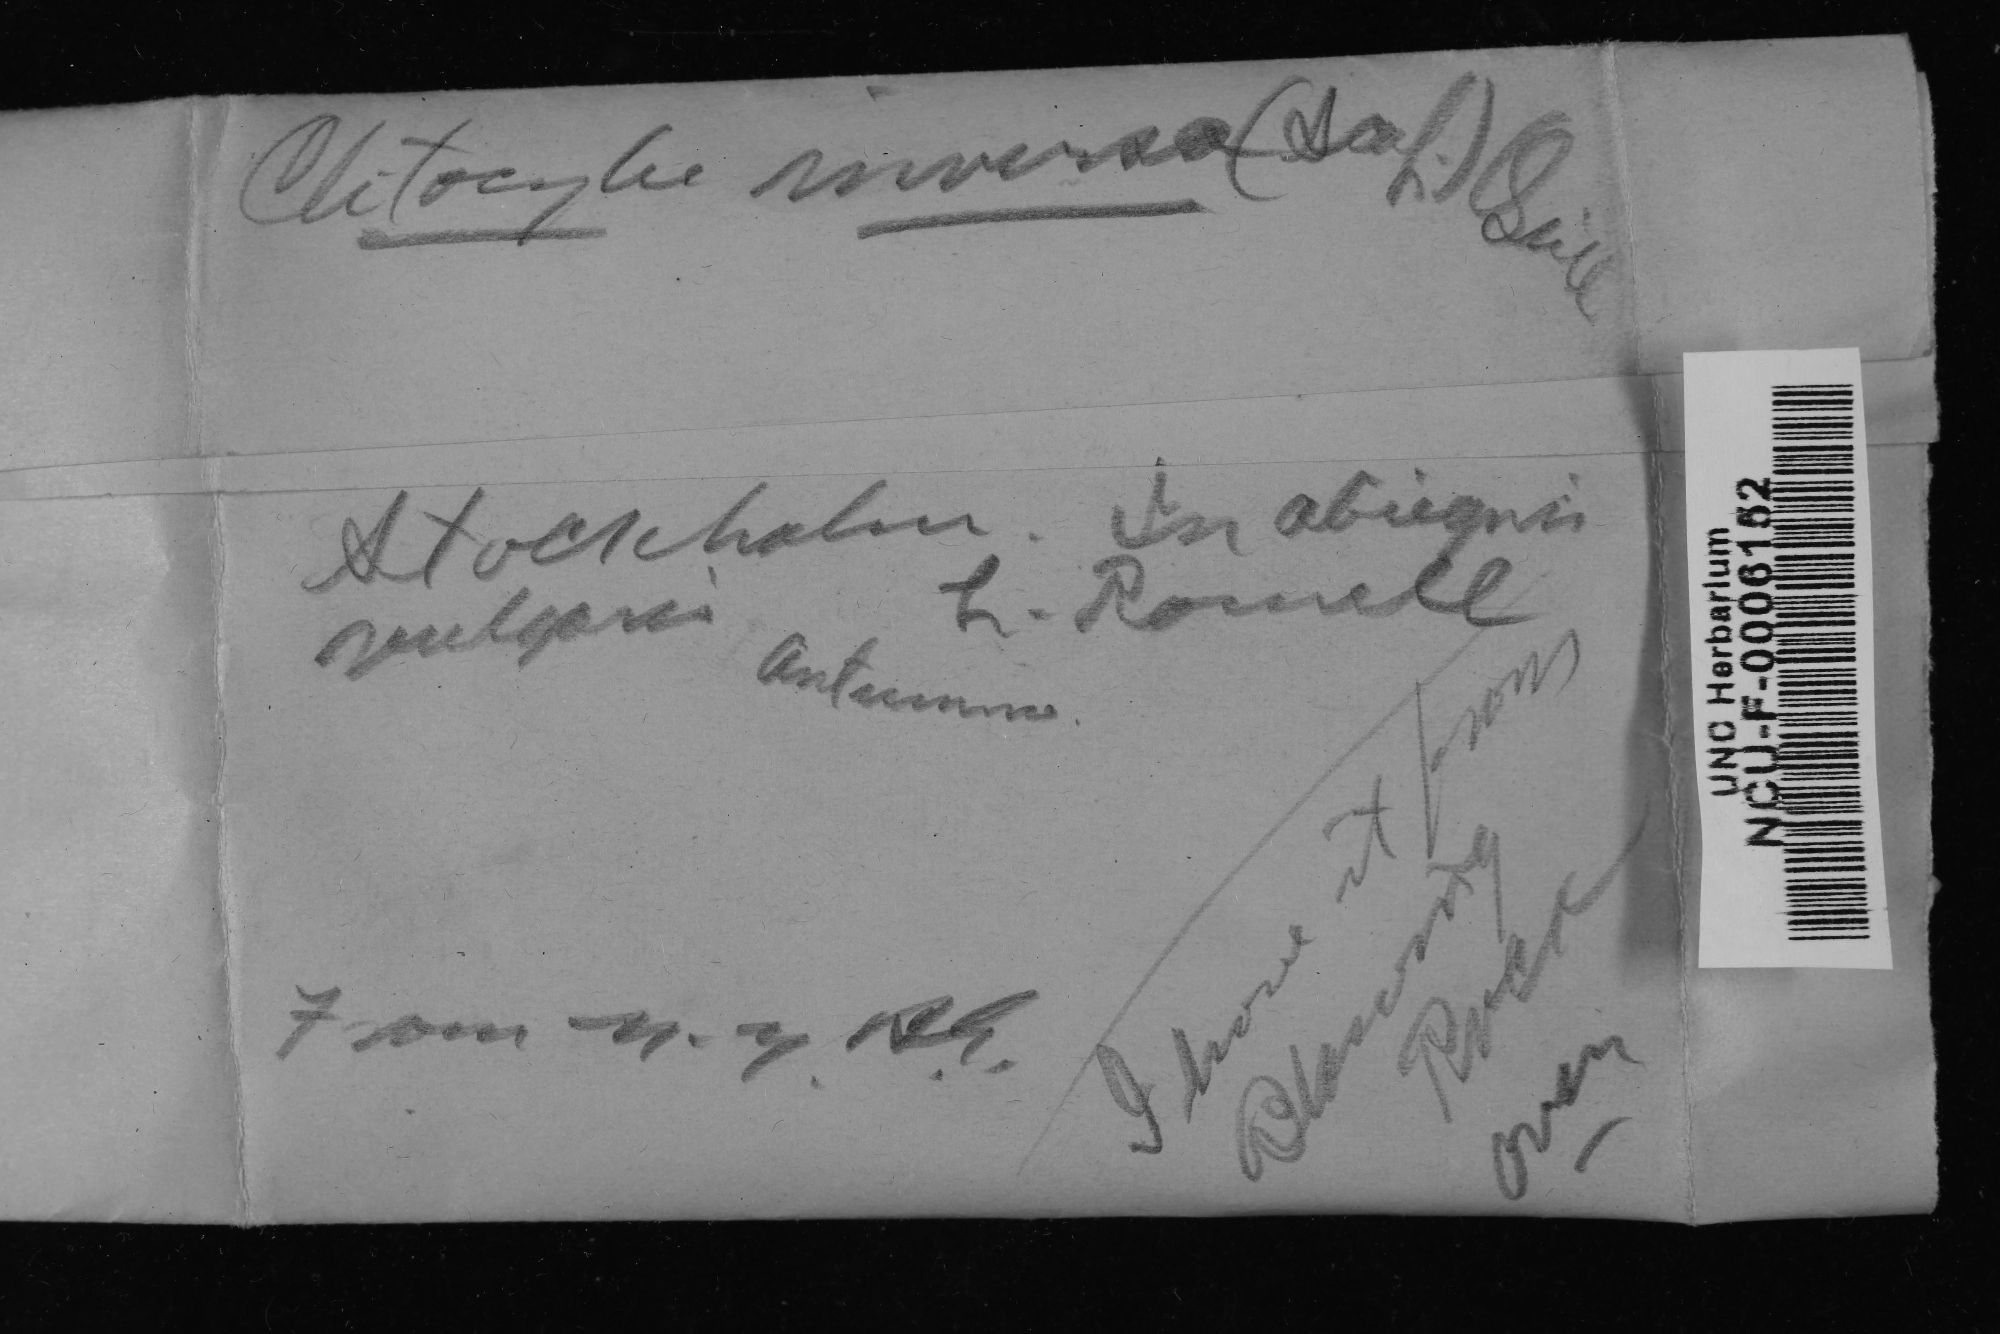 Clitocybe inversa (Scop.) Quél
Stockholm. In abiegnis
vulgaris L. Romell
Autumno.
From N. Y. B. G.
I have it from
Blowing
Rock
over
UNC Herbarium
NCU-F-0006152